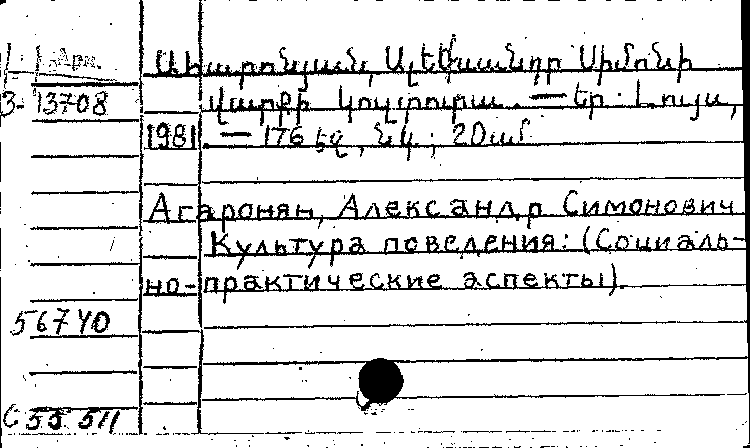 Арм.
Ահարոնյան, Ալեքսանդր Սիմոնի
3-13708 Վարքի կուլտուրա. — Եր.: Լույս,
1981. — 176 էջ, նկ.; 20սմ.
Агаронян, Александр Симонович
Культура поведения: (Социаль-
но-практические аспекты).
56740
С 55 511